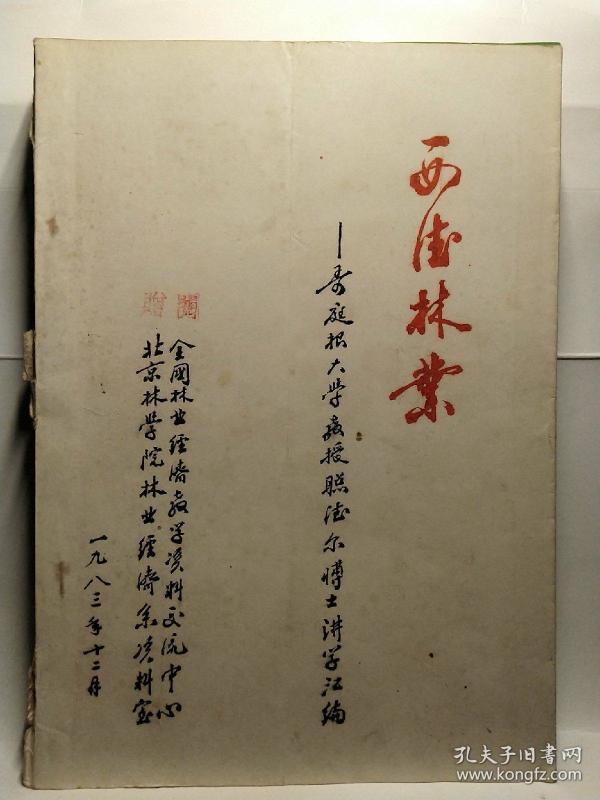 西德林业
—哥庭根大学教授联德尔博士讲学汇编
全國林业经济教学资料交流中心
北京林学院林业经济系资料室
一九八三年十二月
孔夫子旧书网
www.kongfz.com